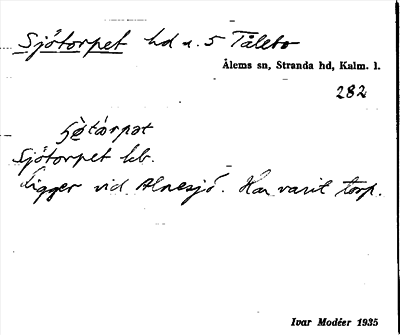 Sjötorpet hd u. 5 Tålebo
Ålems sn, Stranda hd, Kalm. l.
282
Sjötorpet lb.
Ligger vid Alnesjö. Har varit torp.
Ivar Modéer 1935